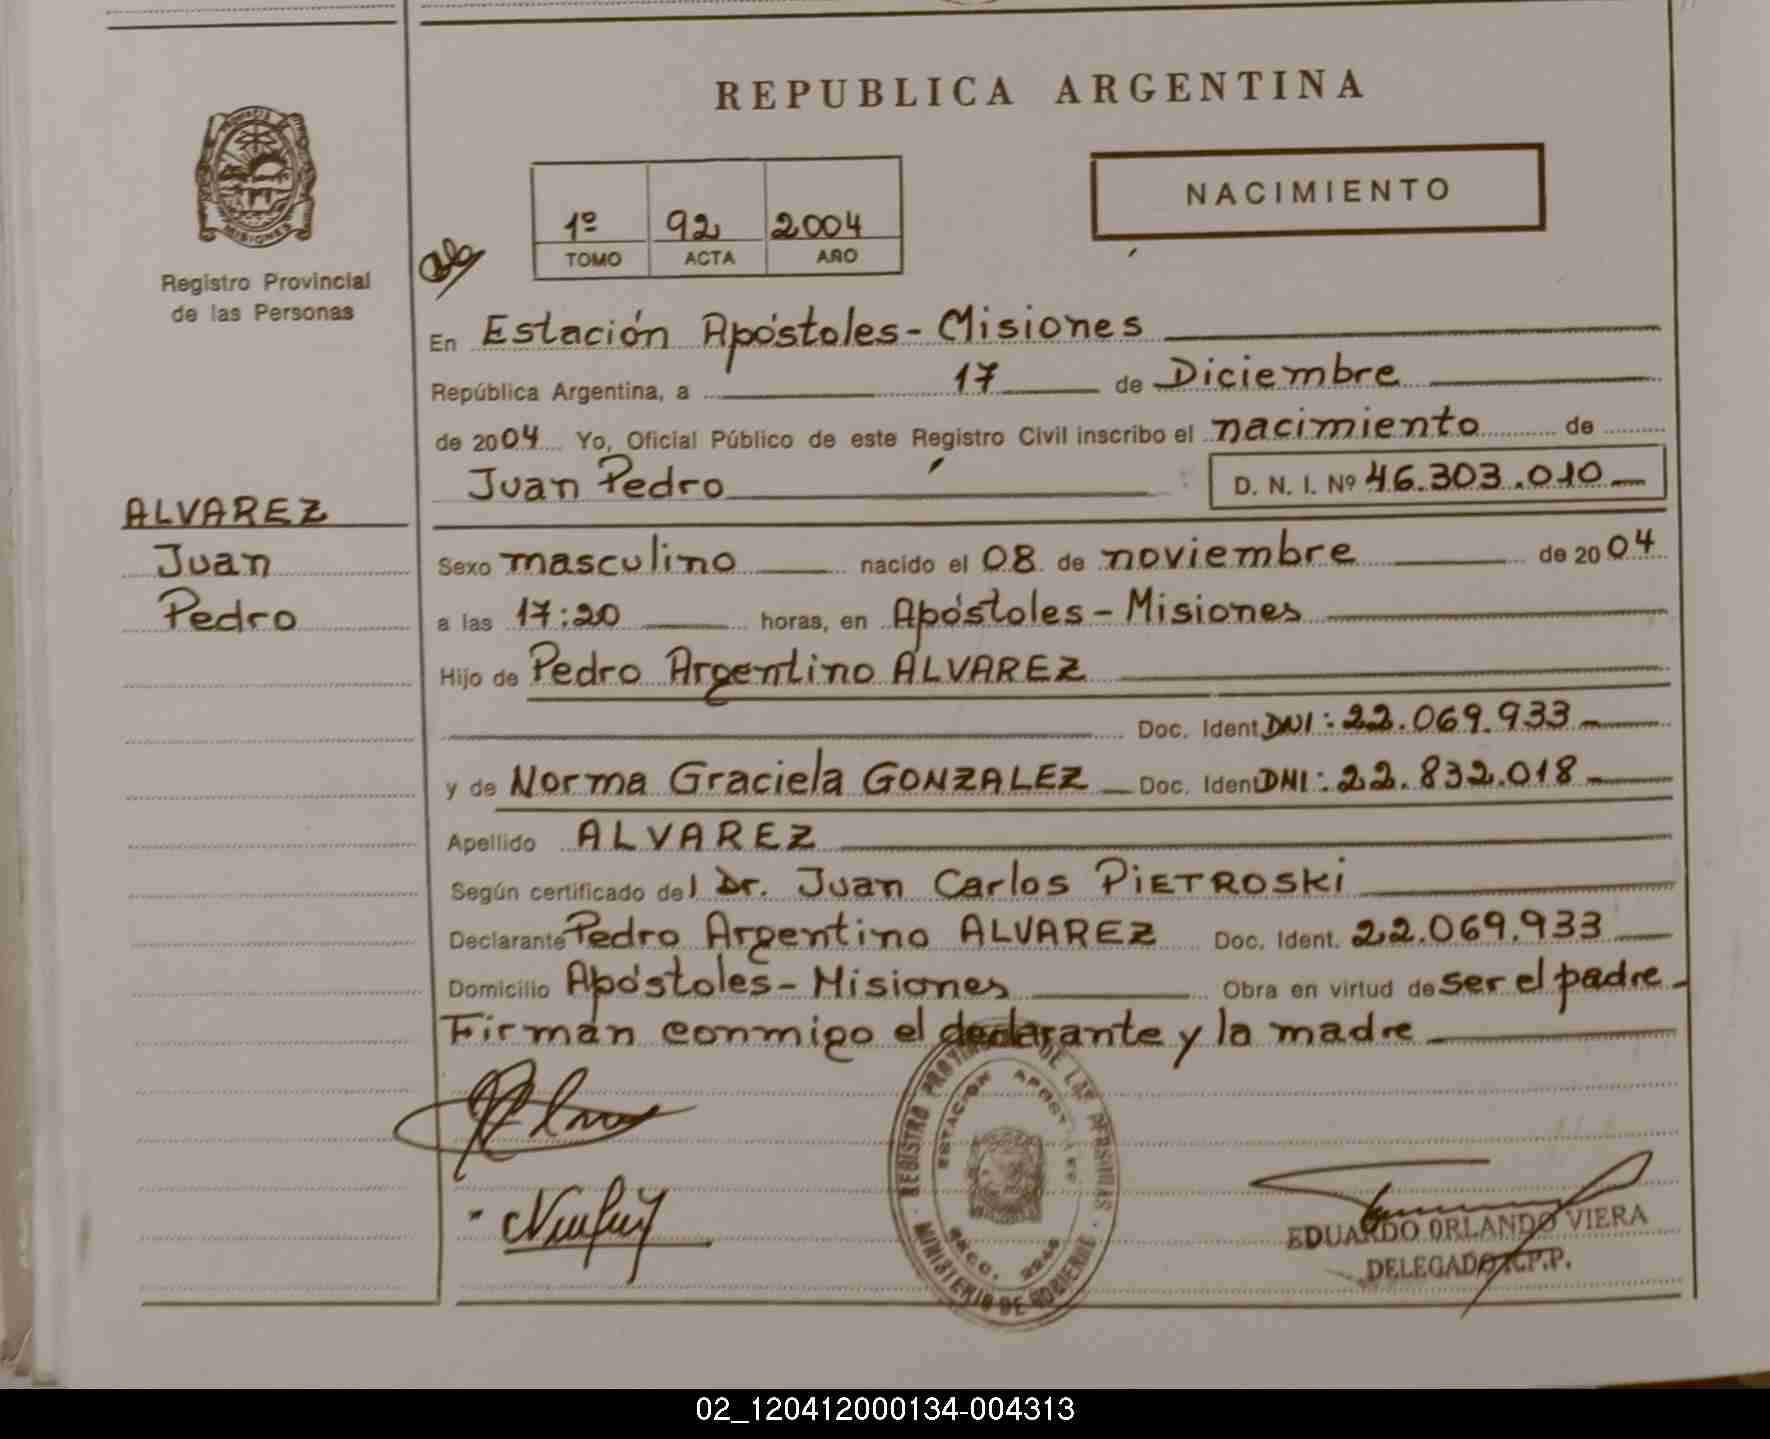 REPUBLICA ARGENTINA
NACIMIENTO
1º 92 2004
TOMO ACTA AÑO
PROVINCIA DE
MISIONES
Registro Provincial
de las Personas
En Estación Apóstoles - Misiones
República Argentina, a 17 de Diciembre
de 2004 Yo, Oficial Público de este Registro Civil inscribo el nacimiento de
Juan Pedro D. N. I. Nº 46.303.010
ALVAREZ
Juan
Pedro
Sexo masculino nacido el 08 de noviembre de 2004
a las 17:20 horas, en Apóstoles - Misiones
Hijo de Pedro Argentino ALVAREZ
Doc. Ident DNI: 22.069.933
y de Norma Graciela GONZALEZ Doc. Ident DNI: 22.832.018
Apellido ALVAREZ
Según certificado del Dr. Juan Carlos PIETROSKI
Declarante Pedro Argentino ALVAREZ Doc. Ident. 22.069.933
Domicilio Apóstoles - Misiones Obra en virtud de ser el padre
Firmán conmigo el declarante y la madre
REGISTRO PROVINCIAL DE LAS PERSONAS
ESTACION APOSTOLES
MINISTERIO DE GOBIERNO
EDUARDO ORLANDO VIERA
DELEGADO R.P.P.
02_120412000134-004313